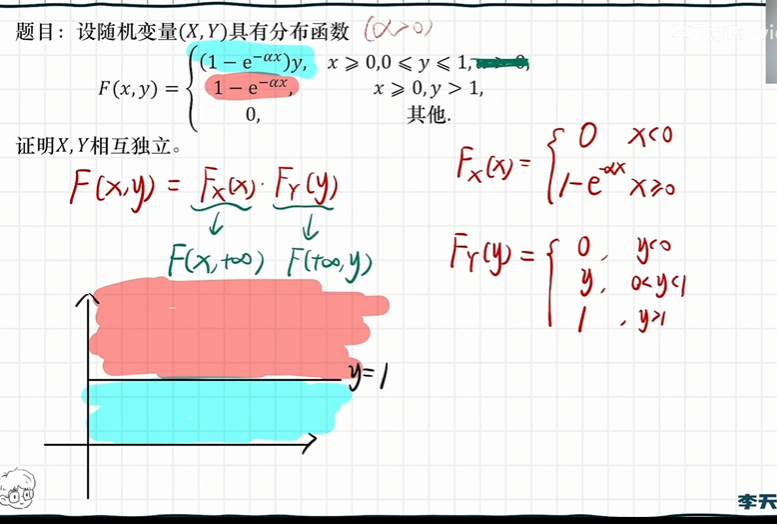 题目:设随机变量(X,Y)具有分布函数 (α>0)
F(x,y) = { (1 − e^{−αx})y, x ⩾ 0,0 ⩽ y ⩽ 1,
1 − e^{−αx}, x ⩾ 0,y > 1,
0, 其他.
证明X,Y相互独立。
F(x,y) = F_X(x) · F_Y(y)
↓ ↓
F(x,+∞) F(+∞,y)
F_X(x) = { 0 x<0
1−e^{−αx} x≥0
F_Y(y) = { 0, y<0
y, 0<y<1
1, y>1
y=1
李天